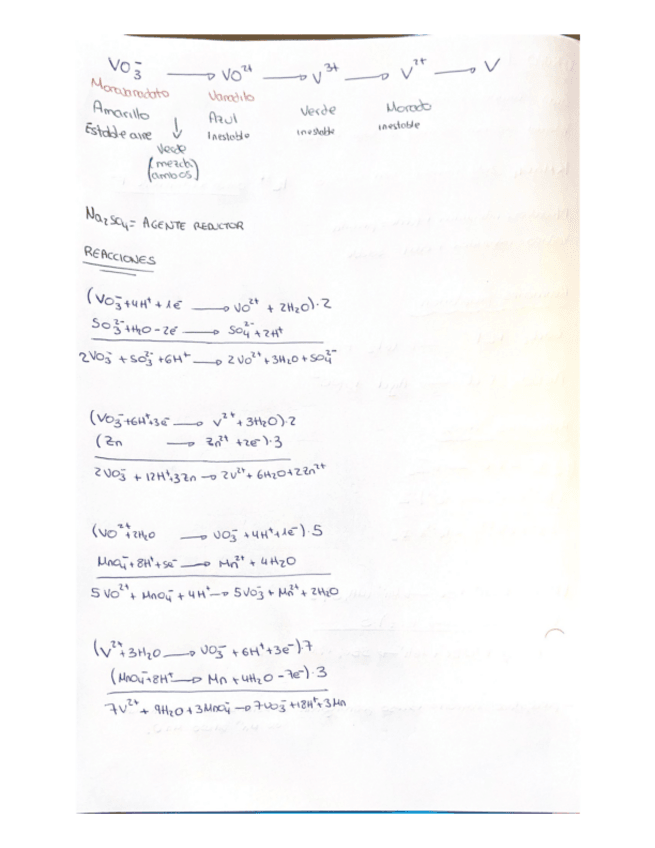 VO₃⁻ → VO²⁺ → V³⁺ → V²⁺ → V
Monovanadato Vanadilo
Amarillo Azul Verde Morado
Estable aire ↓ Inestable inestable inestable
Verde
(mezcla
ambos)
Na₂SO₄ = AGENTE REDUCTOR
REACCIONES
(VO₃⁻ + 4H⁺ + 1e⁻ → VO²⁺ + 2H₂O)·2
SO₃²⁻ + H₂O - 2e⁻ → SO₄²⁻ + 2H⁺
2VO₃⁻ + SO₃²⁻ + 6H⁺ → 2VO²⁺ + 3H₂O + SO₄²⁻
(VO₃⁻ + 6H⁺ + 3e⁻ → V²⁺ + 3H₂O)·2
(Zn → Zn²⁺ + 2e⁻)·3
2VO₃⁻ + 12H⁺ + 3Zn → 2V²⁺ + 6H₂O + 2Zn²⁺
(VO²⁺ + 2H₂O → VO₃⁻ + 4H⁺ + 1e⁻)·5
MnO₄⁻ + 8H⁺ + 5e⁻ → Mn²⁺ + 4H₂O
5VO²⁺ + MnO₄⁻ + 4H⁺ → 5VO₃⁻ + Mn²⁺ + 2H₂O
(V²⁺ + 3H₂O → VO₃⁻ + 6H⁺ + 3e⁻)·7
(MnO₄⁻ + 8H⁺ → Mn + 4H₂O - 7e⁻)·3
7V²⁺ + 9H₂O + 3MnO₄⁻ → 7VO₃⁻ + 18H⁺ + 3Mn